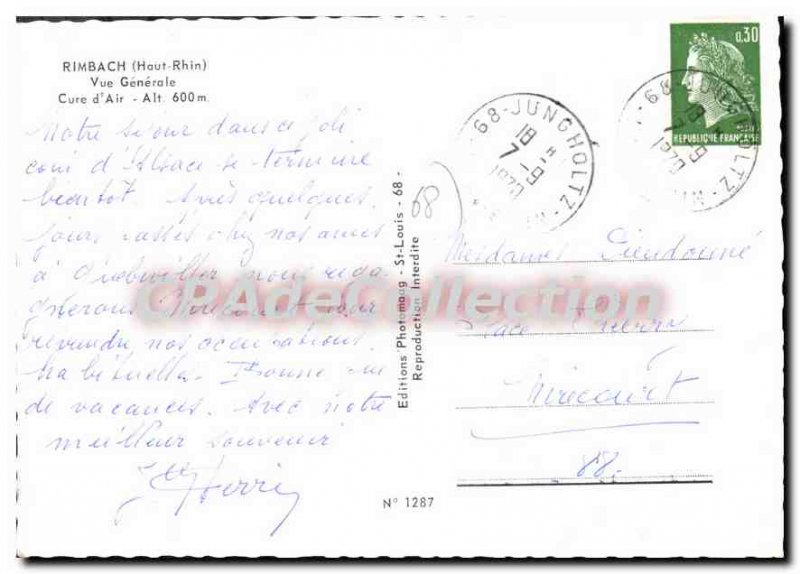 RIMBACH (Haut-Rhin)
Vue Générale
Cure d'Air - Alt. 600 m.
Notre séjour dans ce joli
coin d'Alsace se termine
bientôt. Après quelques
jours passés chez nos amis
à Guebwiller nous rega
gnerons Mirecourt pour
reprendre nos occupations
habituelles. Bonne fin
de vacances. Avec notre
meilleur souvenir
Editions Photomaag - St-Louis - 68 -
Reproduction Interdite
N° 1287
68
68-JUNGHOLTZ
18 H
7-9
1970
0,30
REPUBLIQUE FRANÇAISE
68-JUNGHOLTZ
18 H
7-9
1970
Mesdames Dieudonné
Place Thierry
Mirecourt
88-
CPAdeCollection